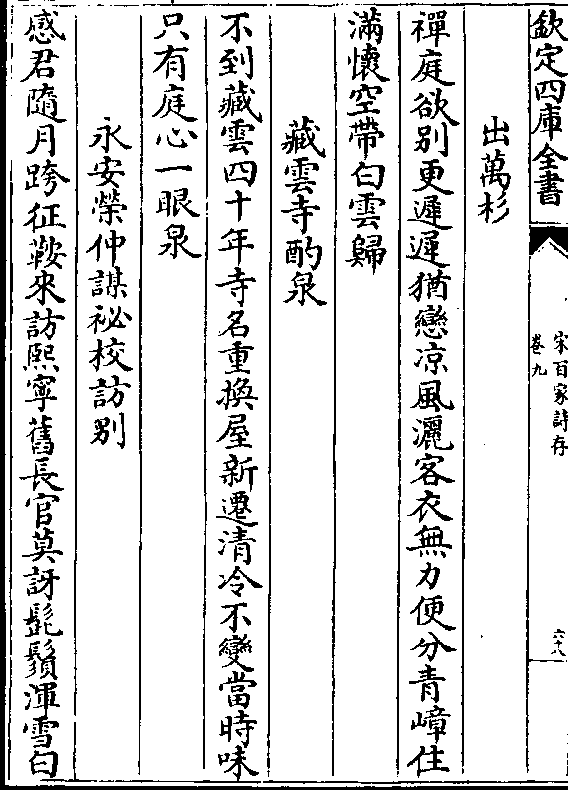 欽定四庫全書
宋百家詩存
卷九
六十八
出萬杉
禪庭欲别更遲遲猶戀凉風灑客衣無力便分青嶂住
滿懷空帶白雲歸
藏雲寺酌泉
不到藏雲四十年寺名重換屋新遷清冷不變當時味
只有庭心一眼泉
永安榮仲謀祕校訪别
感君隨月跨征鞍來訪熙寧舊長官莫訝髭鬚渾雪白